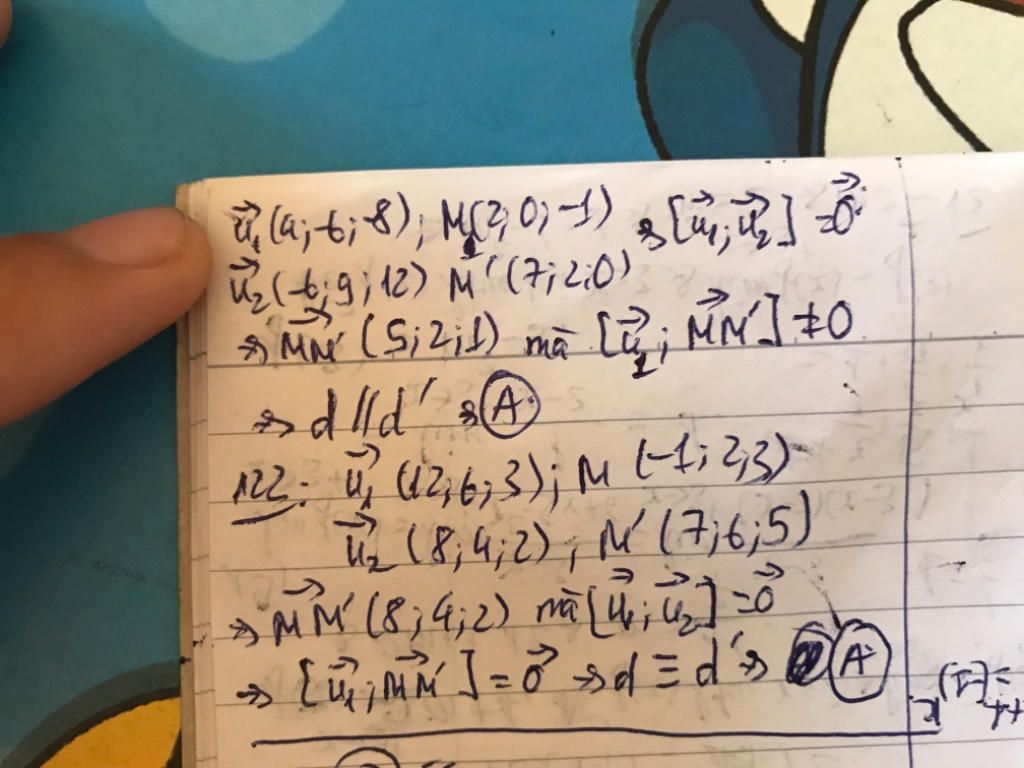 u₁⃗ (4; -6; -8); M(2; 0; -1) ⇒ [u₁⃗; u₂⃗] = 0⃗
u₂⃗ (-6; 9; 12) M' (7; 2; 0)
⇒ MM'⃗ (5; 2; 1) mà [u₂⃗; MM'⃗] ≠ 0
⇒ d // d' ⇒ A
122: u₁⃗ (12; 6; 3); M (-1; 2; 3)
u₂⃗ (8; 4; 2); M' (7; 6; 5)
⇒ MM'⃗ (8; 4; 2) mà [u₁⃗; u₂⃗] = 0⃗
⇒ [u₁⃗; MM'⃗] = 0⃗ ⇒ d ≡ d' ⇒ A